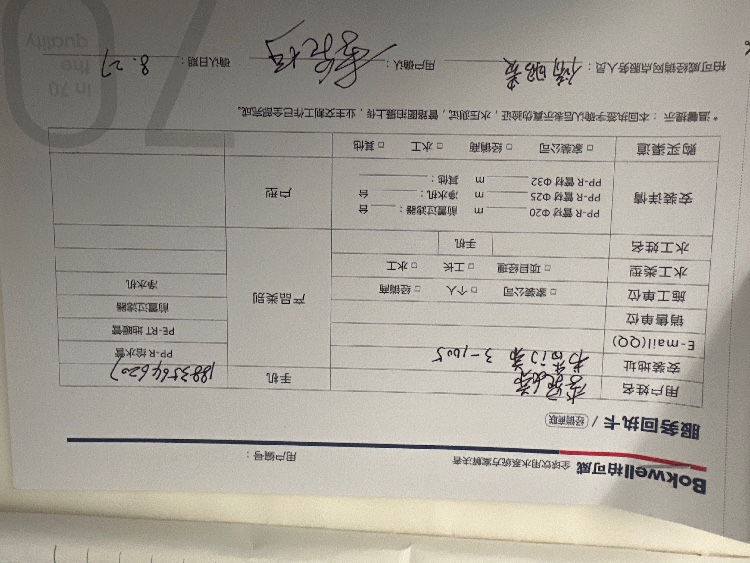 Bokwell柏可威 全球饮用水系统方案解决者 用户编号：
服务回执卡 / 经销商联
用户姓名 手机
安装地址 3-1005 PP-R 给水管
E-mail(QQ) PE-RT 地暖管
销售单位 前置过滤器
施工单位 □ 家装公司 □ 个人 □ 经销商 产品类别 净水机
水工类型 □ 项目经理 □ 工长 □ 水工
水工姓名 手机
安装详情 PP-R 管材 Φ20 m 前置过滤器： 台 户型
PP-R 管材 Φ25 m 净水机 台
PP-R 管材 Φ32 m 其他：
购买渠道 □ 家装公司 □ 经销商 □ 水工 □ 其他
* 温馨提示：本回执签字确认后表示真伪验证，水压测试，管路图拍摄上传，业主交割工作已全部完成。
柏可威经销网点服务人员： 用户确认： 确认日期：8.27
70
in 70
the
quality